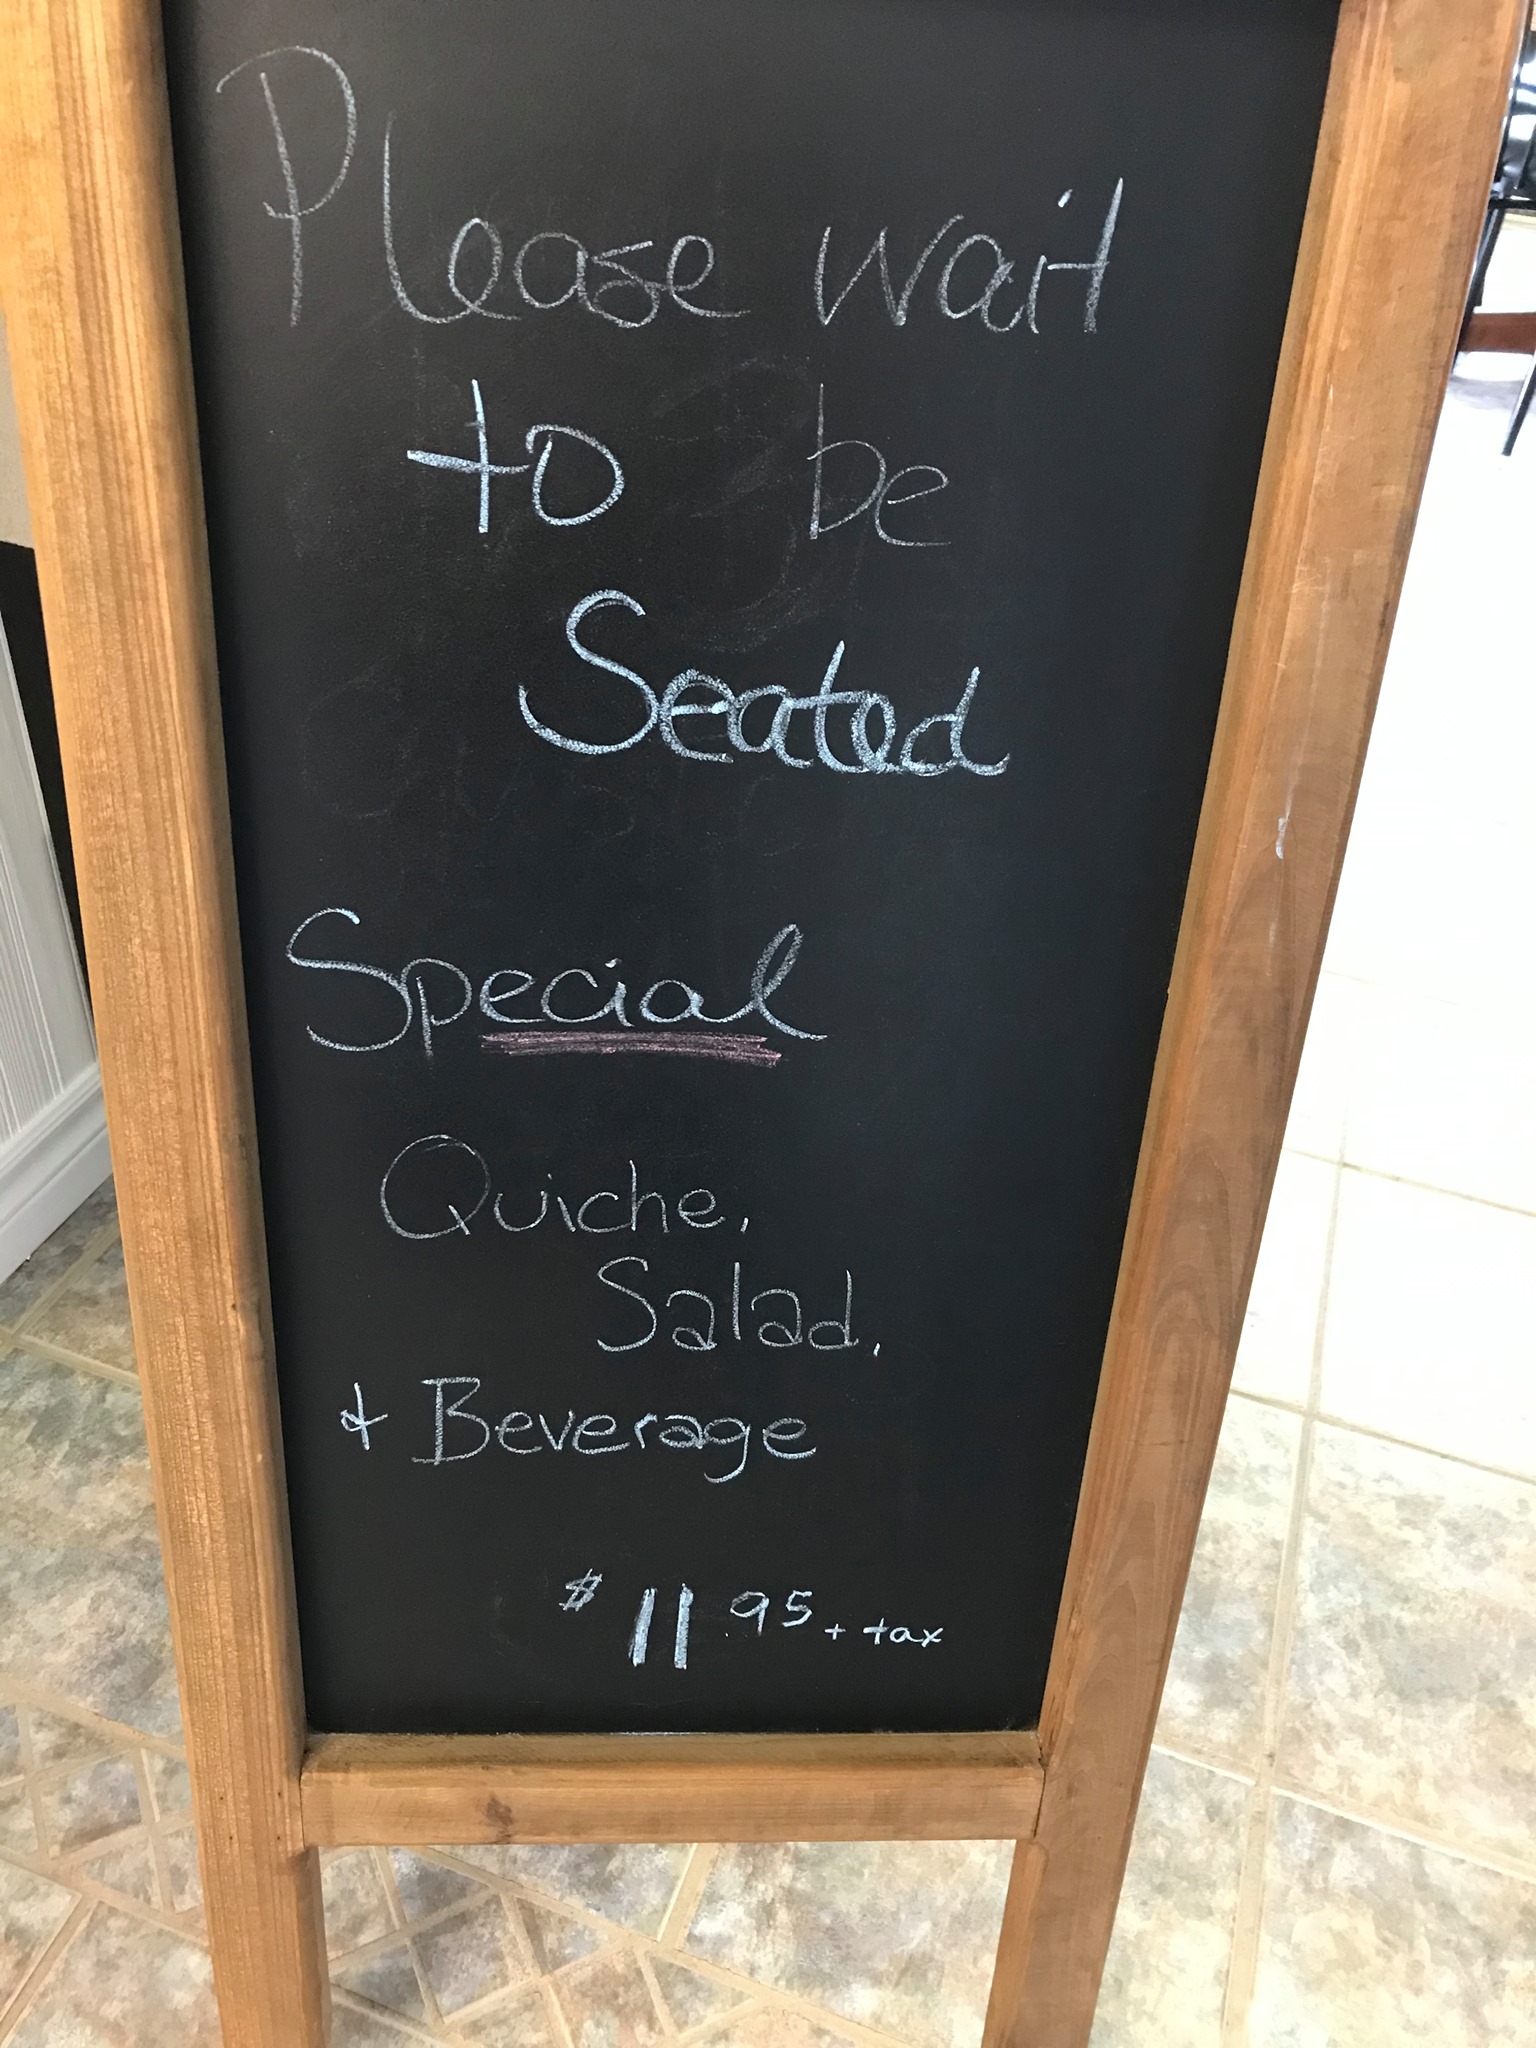 Please wait
to be
Seated
Special
Quiche,
Salad,
& Beverage
$11.95 + tax